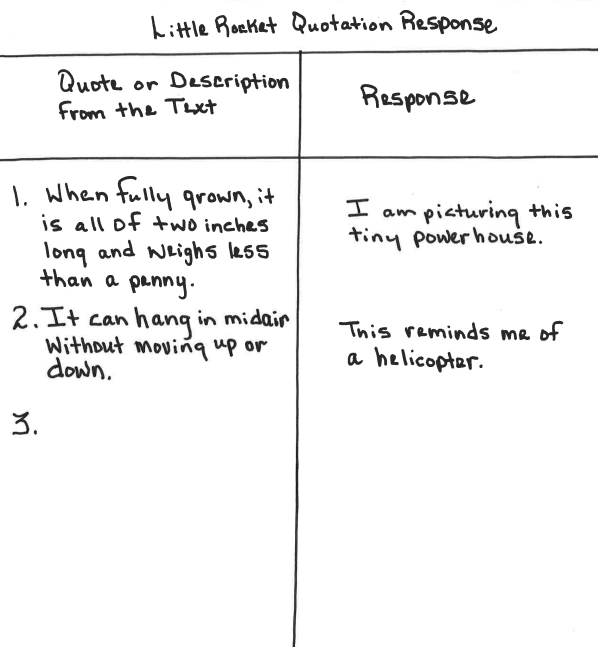 Little Rocket Quotation Response
Quote or Description
From the Text
Response
1. When fully grown, it
is all of two inches
long and weighs less
than a penny.
I am picturing this
tiny powerhouse.
2. It can hang in midair
Without moving up or
down.
This reminds me of
a helicopter.
3.